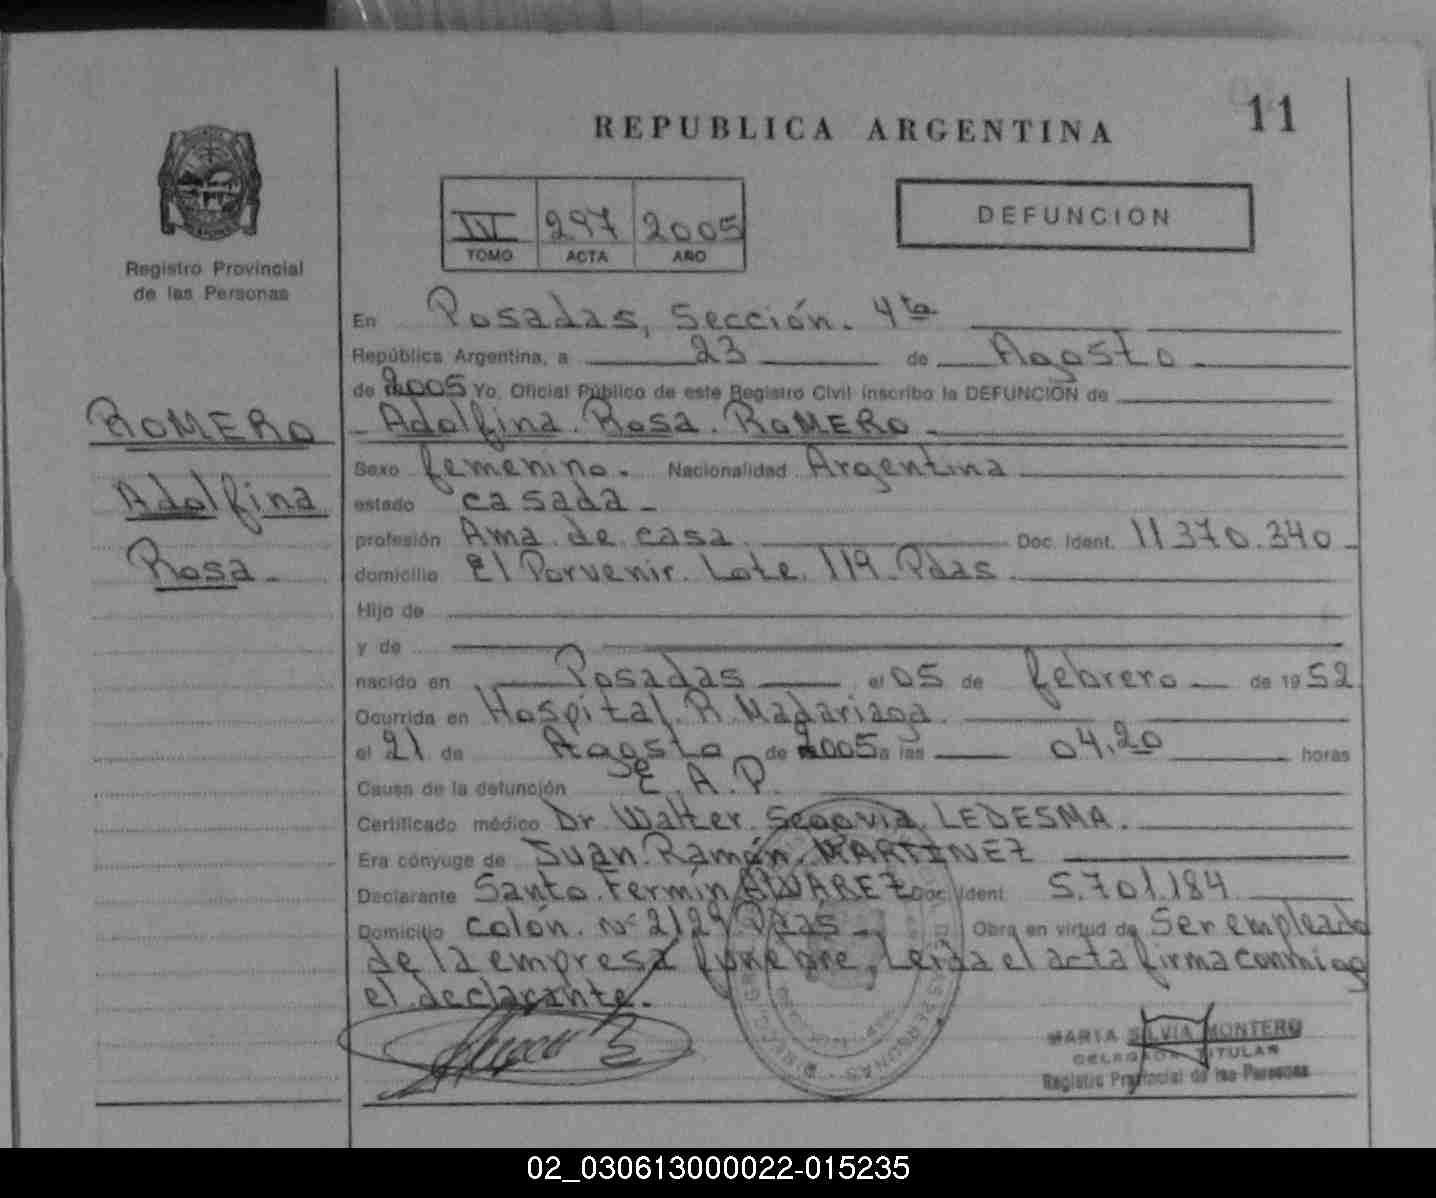 11
REPUBLICA ARGENTINA
III 297 2005
TOMO ACTA AÑO
DEFUNCION
Registro Provincial
de las Personas
ROMERO
Adolfina
Rosa -
En Posadas, Sección. 4ta
República Argentina, a 23 de Agosto
de 2005 Yo, Oficial Público de este Registro Civil inscribo la DEFUNCIÓN de
- Adolfina. Rosa. ROMERO -
Sexo femenino. Nacionalidad Argentina
estado casada -
profesión Ama de casa Doc. Ident. 11370.340 -
domicilio El Porvenir. Lote 119. Pdas
Hijo de
y de
nacido en Posadas el 05 de febrero de 1952
Ocurrida en Hospital R. Madariaga
el 21 de Agosto de 2005 a las 04,20 horas
Causa de la defunción E.A.P.
Certificado médico Dr Walter Segovia LEDESMA.
Era cónyuge de Juan Ramón MARTINEZ
Declarante Santo Fermín ALVAREZ Doc. Ident 5.701.184
Domicilio Colón. nº 2129 Pdas - Obra en virtud de Ser empleado
de la empresa fúnebre, Leida el acta firma conmigo
el declarante.
MARTA SILVIA MONTERO
DELEGADA TITULAR
Registro Provincial de las Personas
02_030613000022-015235